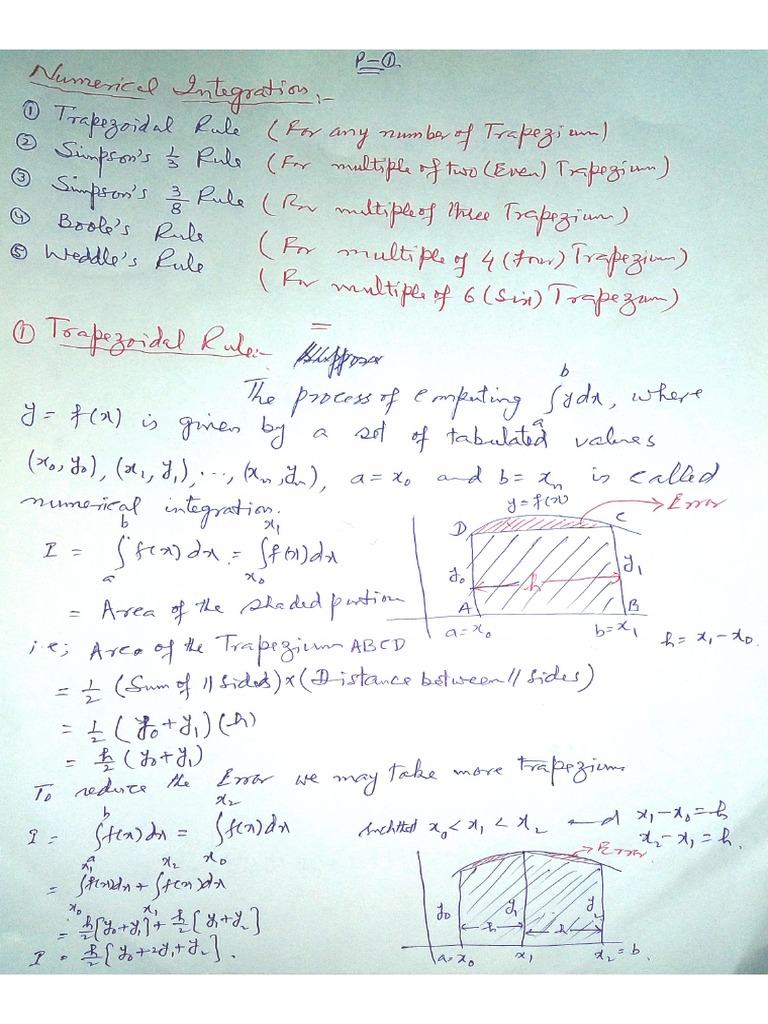 P-①
Numerical Integration:-
① Trapezoidal Rule (For any number of Trapezium)
② Simpson's 1/3 Rule (For multiple of two (Even) Trapezium)
③ Simpson's 3/8 Rule (For multiple of three Trapezium)
④ Boole's Rule (For multiple of 4 (four) Trapezium)
⑤ Weddle's Rule (For multiple of 6 (Six) Trapezum)
=
① Trapezoidal Rule:-
The process of computing ∫_a^b y dx, where
y = f(x) is given by a set of tabulated values
(x₀, y₀), (x₁, y₁), ..., (xₙ, yₙ), a = x₀ and b = xₙ is called
numerical integration.
I = ∫_a^b f(x) dx = ∫_{x₀}^{x₁} f(x) dx
= Area of the shaded portion
y = f(x) → Error
D C
y₀ h y₁
A B
a = x₀ b = x₁ h = x₁ - x₀
i.e; Area of the Trapezium ABCD
= 1/2 (Sum of || sides) × (Distance between || sides)
= 1/2 (y₀ + y₁) (h)
= h/2 (y₀ + y₁)
To reduce the Error we may take more trapezium
I = ∫_a^b f(x) dx = ∫_{x₀}^{x₂} f(x) dx such that x₀ < x₁ < x₂ and x₁ - x₀ = h
x₂ - x₁ = h.
= ∫_{x₀}^{x₁} f(x) dx + ∫_{x₁}^{x₂} f(x) dx
= h/2 [y₀ + y₁] + h/2 [y₁ + y₂]
I = h/2 [y₀ + 2y₁ + y₂].
→ Error
y₀ y₁ y₂
h h
a = x₀ x₁ x₂ = b.